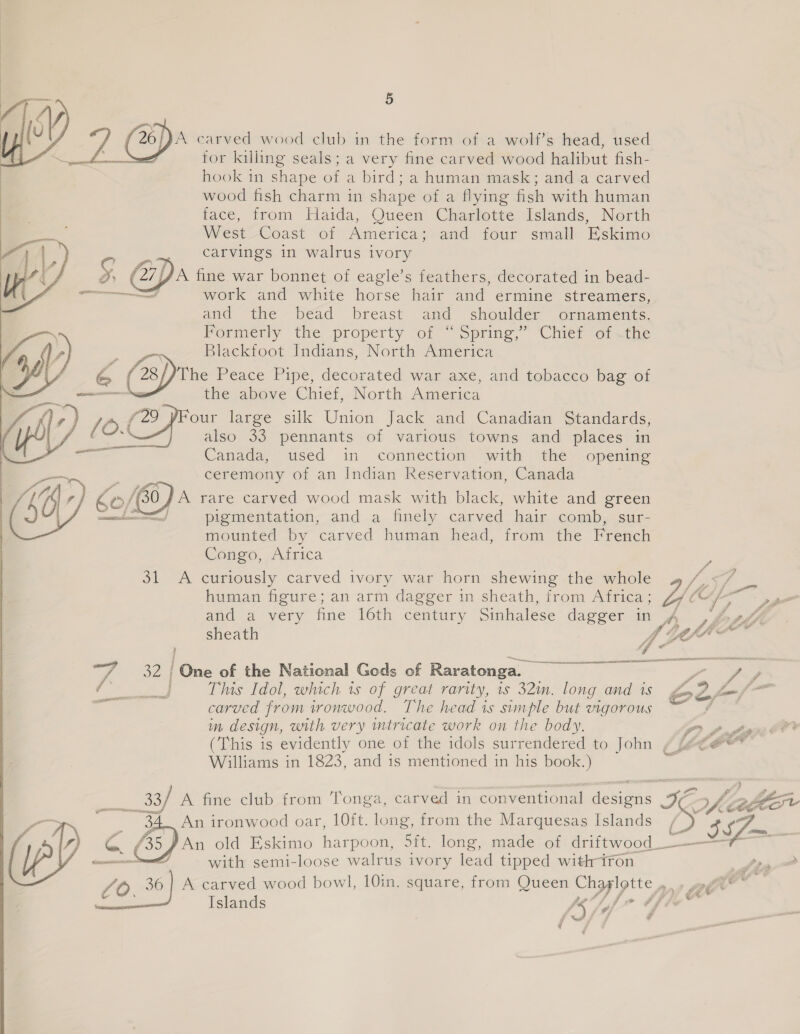 5
7 26 A carved wood club in the form of a wolf's head, used
for killing seals; a very fine carved wood halibut fish-
hook in shape of a bird; a human mask; and a carved
wood fish charm in shape of a flying fish with human
face, from Haida, Queen Charlotte Islands, North
West Coast of America; and four small Eskimo
carvings in walrus ivory
27 A fine war bonnet of eagle's feathers, decorated in bead-
work and white horse hair and ermine streamers,
and the bead breast and shoulder ornaments.
Formerly the property of "Spring," Chief of the
Blackfoot Indians, North America
6 28 The Peace Pipe, decorated war axe, and tobacco bag of
the above Chief, North America
10. 29 Four large silk Union Jack and Canadian Standards,
also 33 pennants of various towns and places in
Canada, used in connection with the opening
ceremony of an Indian Reservation, Canada
60/ 30 A rare carved wood mask with black, white and green
pigmentation, and a finely carved hair comb, sur-
mounted by carved human head, from the French
Congo, Africa
31 A curiously carved ivory war horn shewing the whole
human figure; an arm dagger in sheath, from Africa;
and a very fine 16th century Sinhalese dagger in
sheath
7 32 One of the National Gods of Raratonga.
This Idol, which is of great rarity, is 32in. long and is
carved from ironwood. The head is simple but vigorous
in design, with very intricate work on the body.
(This is evidently one of the idols surrendered to John
Williams in 1823, and is mentioned in his book.)
33 A fine club from Tonga, carved in conventional designs
34 An ironwood oar, 10ft. long, from the Marquesas Islands
6 35 An old Eskimo harpoon, 5ft. long, made of driftwood
with semi-loose walrus ivory lead tipped with iron
10. 36 A carved wood bowl, 10in. square, from Queen Charlotte
Islands